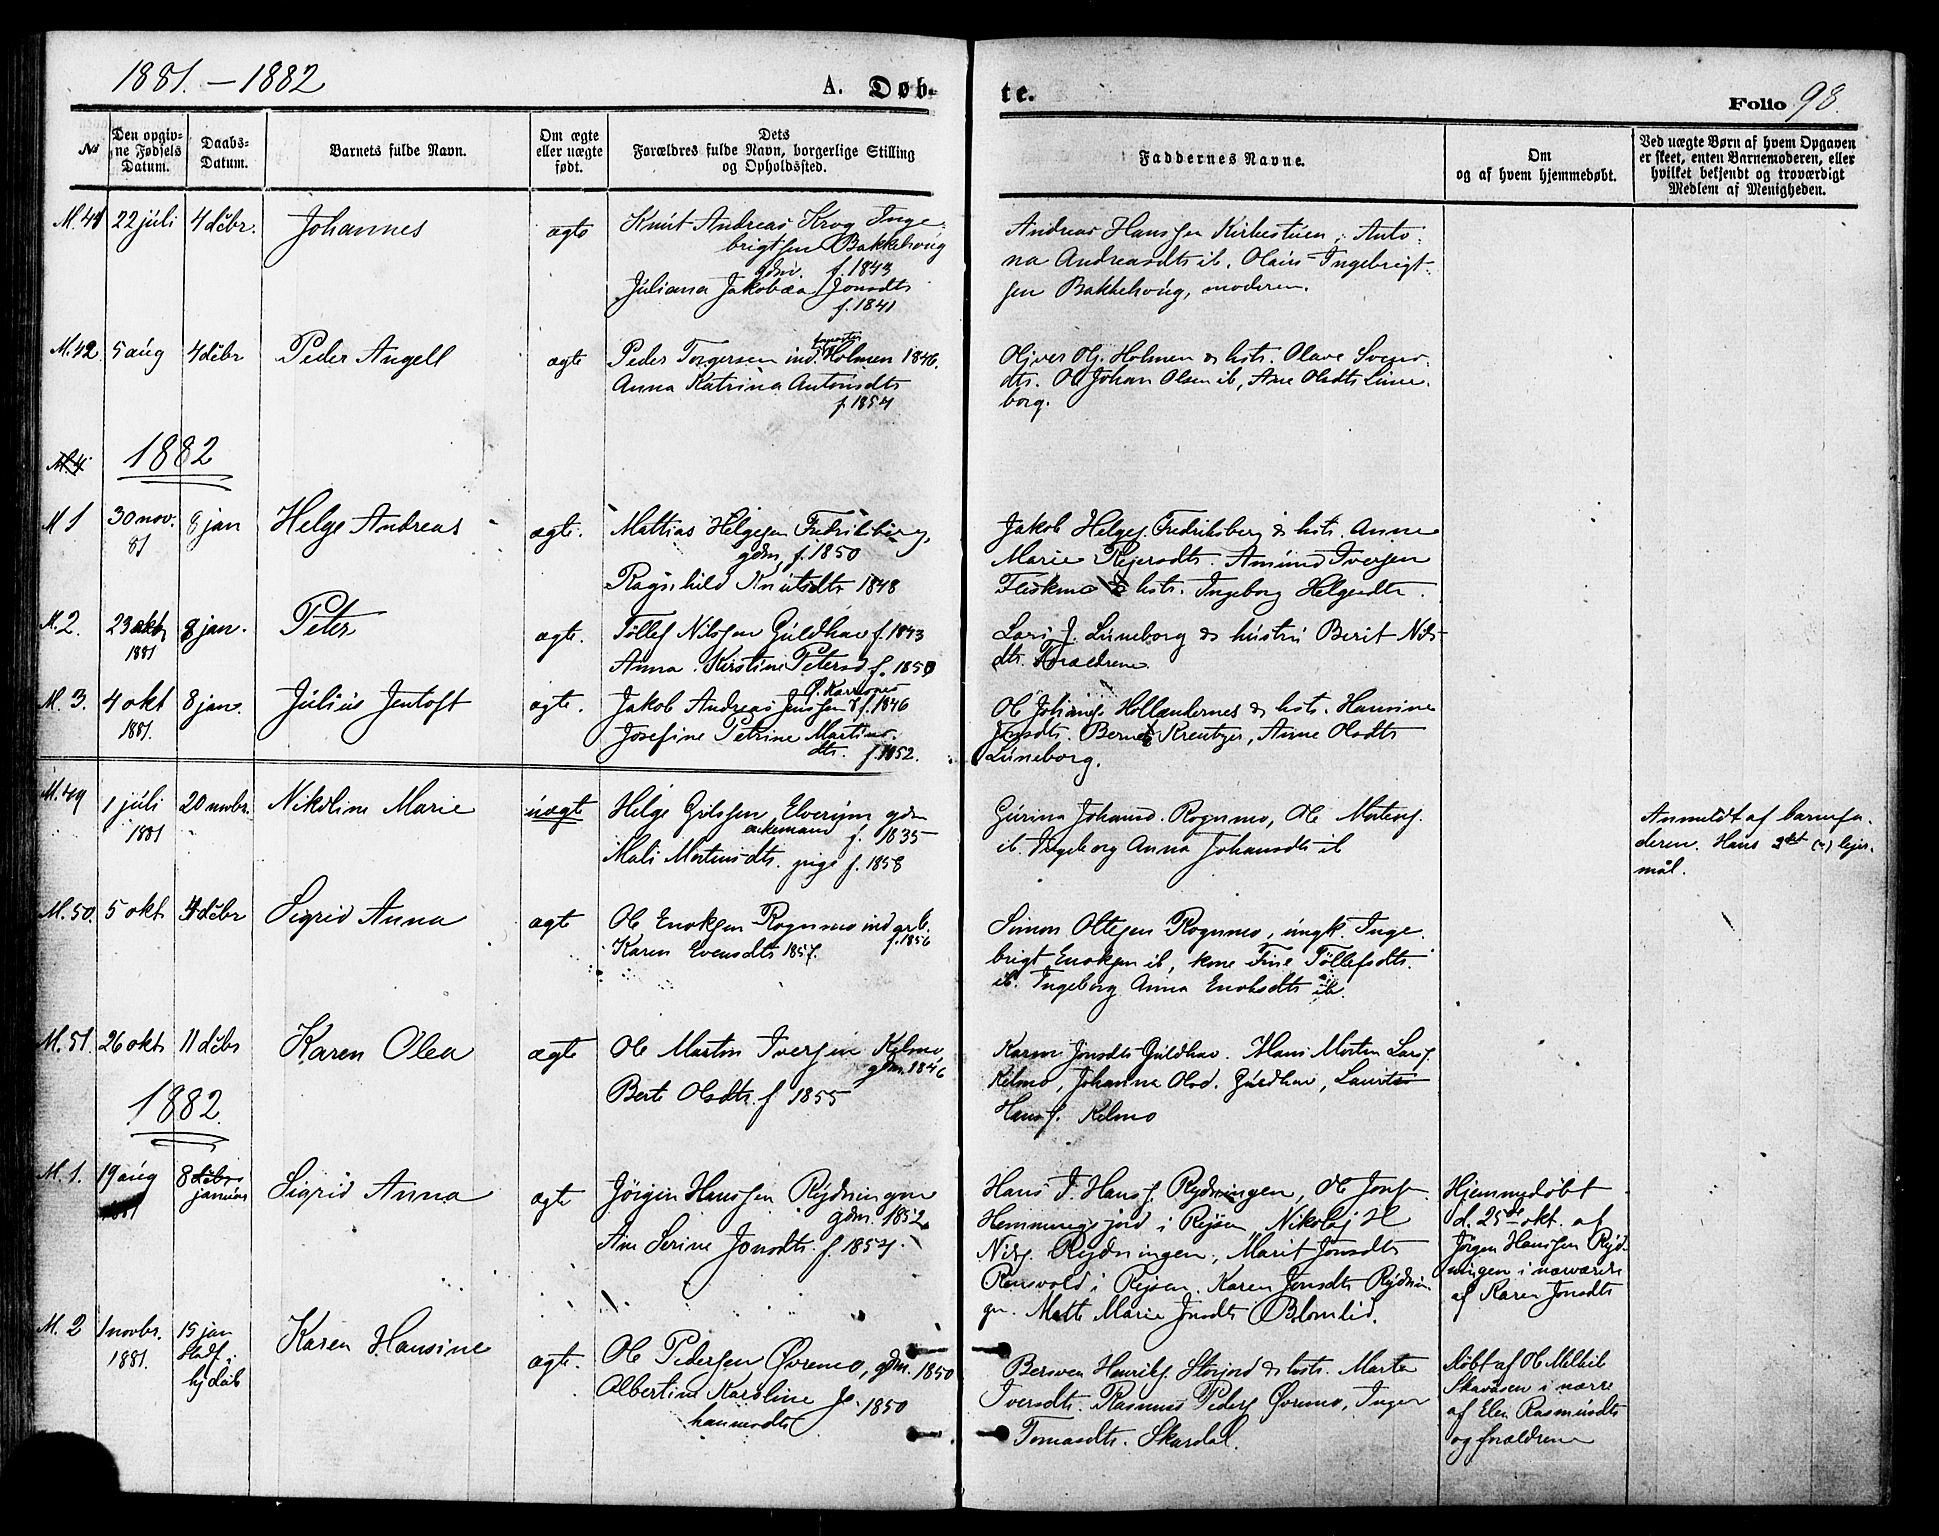 1881. – 1882
A. Døb-
te.
Folio 98.
No
Den opgiv-
ne Fødsels
Datum.
Daabs-
Datum.
Barnets fulde Navn.
Om ægte
eller uægte
født.
Dets
Forældres fulde Navn, borgerlige Stilling
og Opholdssted.
Faddernes Navne.
Om
og af hvem hjemmedøbt.
Ved uægte Børn af hvem Opgaven
er skeet, enten Barnemoderen, eller
hvilket bekjendt og troværdigt
Medlem af Menigheden.
M. 41 22 júli 4 dcbr. Johannes ægte Knút Andreas Krog Inge-
brigtsen Bakkehoúg
gdm. f. 1843
Júliana Jakobæa Jonsdtr
f. 1841
Andreas Hanssen Kirkestúen, Anto-
na Andreasdtr ib. Olaús Ingebrigt-
sen Bakkehoúg, moderen.
M. 42 5 aúg 4 dcbr Peder Angell ægte Peder Torgersen ind. Holmen 1846.
Anna Katrina Antonsdtr
f. 1854
Oliver Olj. Holmen & hstr. Olave Svens-
dtr. Ol Johan Olsen ib, Ane Olsdtr Lúne-
borg.
M. 4
1882
M 1 30 nov. 81 8 jan Helge Andreas ægte. Mattias Helgesen Fredriksberg,
gdm, f. 1850
Ragnhild Knútsdtr 1848
Jakob Helges. Fredriksberg & hstr. Anne
Marie Rejersdtr. Amúnd Iversen
Fleskmo & hstr. Ingeborg Helgesdtr.
M. 2. 23 okt 1881 8 jan. Peter ægte. Tøllef Nilssen Gúldhav f. 1843
Anna Kirstine Petersd f. 1850
Lars J. Lúneborg & hústrú Berit Nils-
dtr. Forældrene
M. 3. 4 okt 1881. 8 jan. Júliús Jentoft ægte. Jakob Andreas Jenssen f. 1846
Josefine Petrine Martins-
dtr. f. 1852.
Ol Johans. Hollendernes & hstr. Hansine
Jonsdtr. Bernt Kreutzer, Anne Olsdtr
Lúneborg.
M. 49 1 júli 1881 20 novbr. Nikoline Marie úægte Helge Grilssen Elverúm gdm
enkemand f. 1835
Mali Mortensdtr. pige f. 1858
Gúrina Johansd. Rognmo, Ole Mortens.
ib. Ingeborg Anna Johansdtr ib
Anmeldt af barnefa-
deren. Hans 3det (-) lejer-
mål.
M. 50. 5 okt 4 dcbr Sigrid Anna ægt Ole Enoksen Rognmo ind arb.
f. 1856
Karen Evensdtr 1857.
Simon Oltesen Rognmo, úngk. Inge-
brigt Enoksen ib, kone Fine Tøllefsdtr.
ib. Ingeborg Anna Enoksdtr ib.
M. 51. 26 okt 11 dcbr Karen Olea ægte Ole Martin Iversen Kjelmo,
gdm. 1846
Berit Olsdtr. f 1855
Karen Jonsdtr Gúldhav. Hans Morten Lars.
Kelmo, Johanna Olsd. Gúldhav, Lauritz
Hans. Kelmo
1882.
M. 1. 19 aúg 1881 8 dcbr janúar Sigrid Anna ægte Jörgen Hanssen Rydningen
gdm. 1852.
Ane Serine Jonsdtr. f. 1854.
Hans J. Hans. Rydningen, Ole Jons.
Hemmingsjord i Rejsen, Nikolaj H
Nils. Rydningen, Marit Jonsdtr
Rensvold i Rejsen. Karen Jonsdtr Rydnin-
gn. Mette Marie Jonsdtr Blomlid.
Hjemmedøbt
d. 25de okt. af
Jörgen Hanssen Ryd-
ningen i nærværelse
af Karen Jonsdtr
M. 2 1 novbr. 1881. 15 jan
hj døb
Karen Hansine ægte. Ole Pedersen Øvremo, gdm. 1850
Albertine Karoline Jo-
hannesdtr 1850
Bersven Henriks. Storjord & hstr. Marte
Iversdtr. Rasmus Peders Øvremo, Inger
Tomasdtr. Skardal.
døbt af Ole Mellik
Skavåsen i nærv.
af Elen Rasmúsdtr
og forældrene